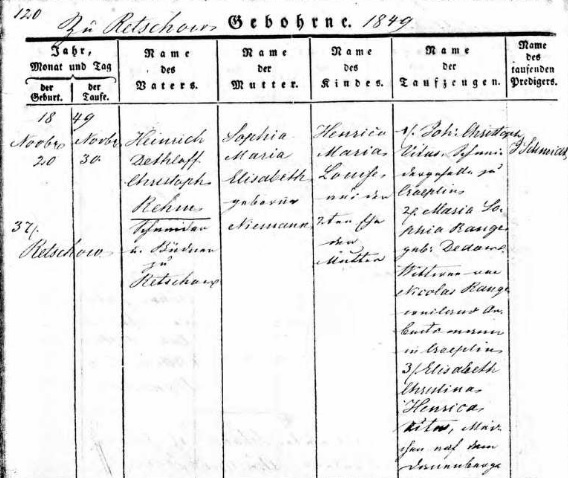 120
Zu Retschow Gebohrne. 1849.
Jahr, Monat und Tag
der Geburt.
der Taufe.
Name des Vaters.
Name der Mutter.
Name des Kindes.
Name der Taufzeugen.
Name des taufenden Predigers.
1849
Novbr 20
Novbr 30.
37).
Retschow
Heinrich
Dethloff
Christoph
Rehm
Schneider
u. Büdner
zu
Retschow
Sophia
Maria
Elisabeth
geborne
Niemann
Henrica
Maria
Louise
aus der
2ten Ehe
der
Mutter
1) Joh: Christoph
Vitus, Schnei-
dergeselle zu
Croepelin
2) Maria So-
phia Range
geb: Dedow
Wittwe
Nicolas Range
in Croepelin
3) Elisabeth
Christina
Henrica
Mäd-
chen auf dem
P Schmidt